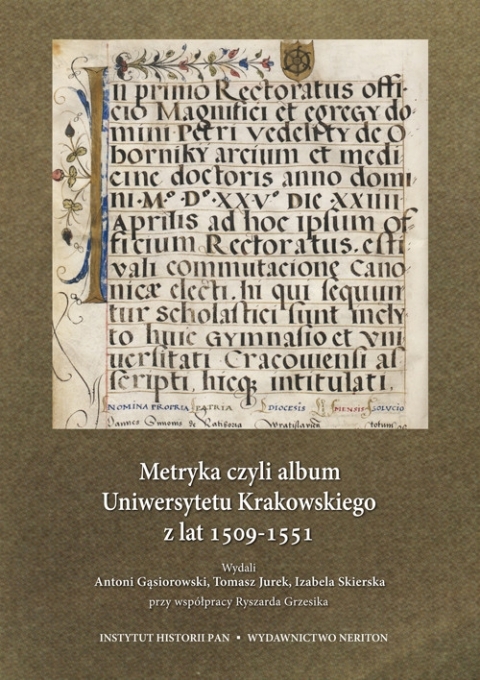 In primo Rectoratus offi-
cio Magnifici et egregy do
mini Petri vedelity de O
borniky arcium et medi
cine doctoris anno domi
ni · M.º D.º XXVº DIE XXIIII
Aprilis ad hoc ipsum of-
ficium Rectoratus. esti-
vali commutacione cano-
nicæ electi. hi qui sequun
tur scholastici sunt incly
to huic Gymnasio et vni
uersitati Cracouiensi as
scripti. hicq; intitulati.
NOMINA PROPRIA PATRIA DIOCESIS MENSIS SOLVCIO
de Ratiboria Wratislavien totum
Metryka czyli album
Uniwersytetu Krakowskiego
z lat 1509-1551
Wydali
Antoni Gąsiorowski, Tomasz Jurek, Izabela Skierska
przy współpracy Ryszarda Grzesika
INSTYTUT HISTORII PAN • WYDAWNICTWO NERITON